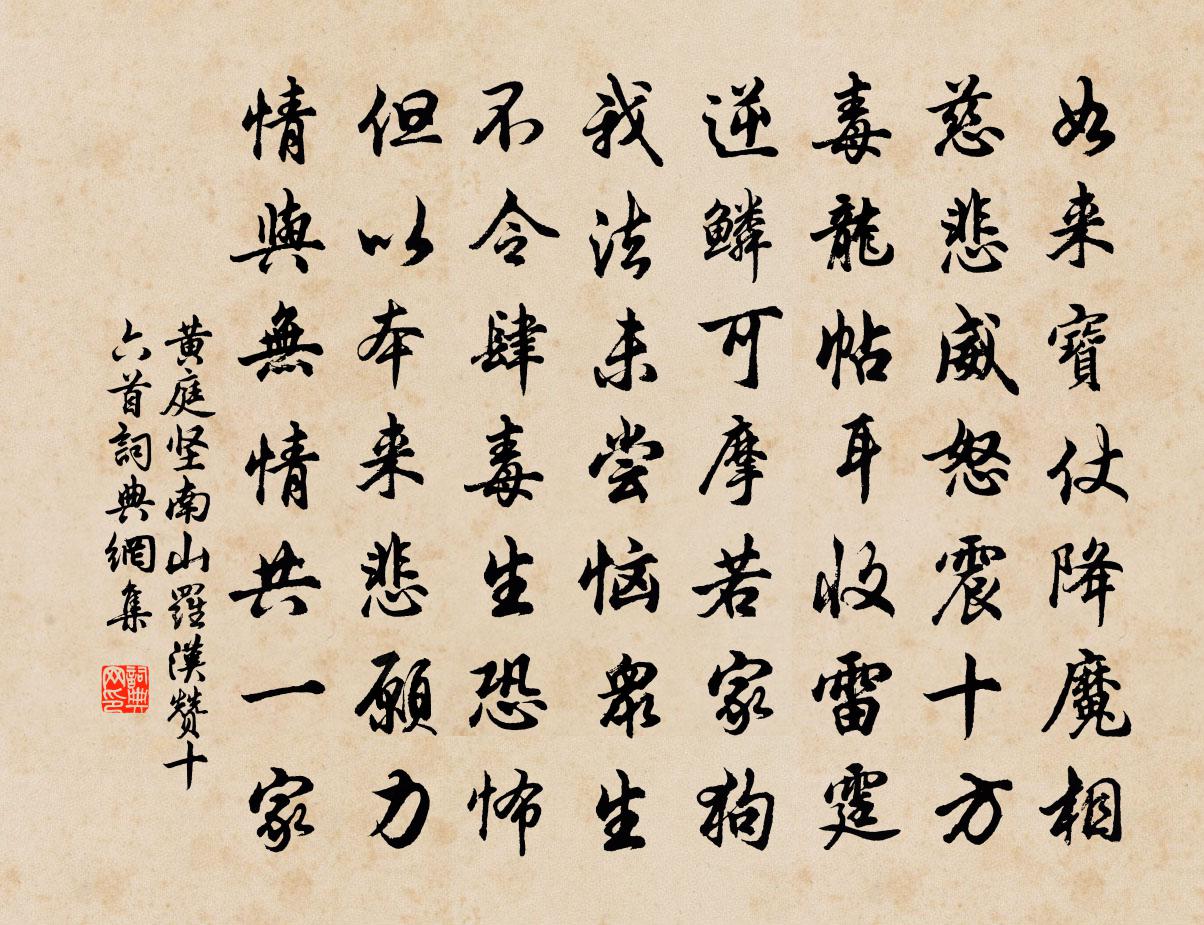 如来寶仗降魔相
慈悲威怒震十方
毒龍帖耳收雷霆
逆鱗可摩若家狗
我法未尝恼眾生
不令肆毒生恐怖
但以本来悲願力
情與無情共一家
黄庭坚南山羅漢赞十
六首詞典網集
詞典
网印